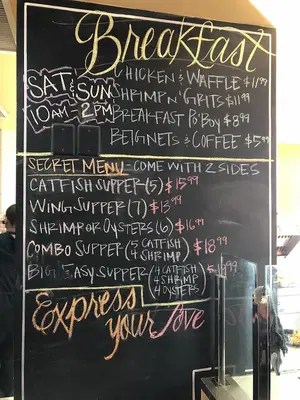 Breakfast
SAT & SUN
10AM - 2PM
CHICKEN & WAFFLE $11.99
SHRIMP N' GRITS $11.99
BREAKFAST PO'BOY $8.99
BEIGNETS & COFFEE $5.99
SECRET MENU - COME WITH 2 SIDES
CATFISH SUPPER (5) $15.99
WING SUPPER (7) $13.99
SHRIMP OR OYSTERS (6) $16.99
COMBO SUPPER (5 CATFISH 4 SHRIMP) $18.99
BIG EASY SUPPER (4 CATFISH 4 SHRIMP 4 OYSTERS)
Express
your love